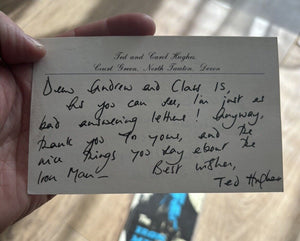 Ted and Carol Hughes,
Court Green, North Tawton, Devon
Dear Andrew and Class 1S,
As you can see, I'm just as
bad answering letters! Anyway,
thank you for yours, and the
nice things you say about the
Iron Man —
Best wishes,
Ted Hughes
IRON